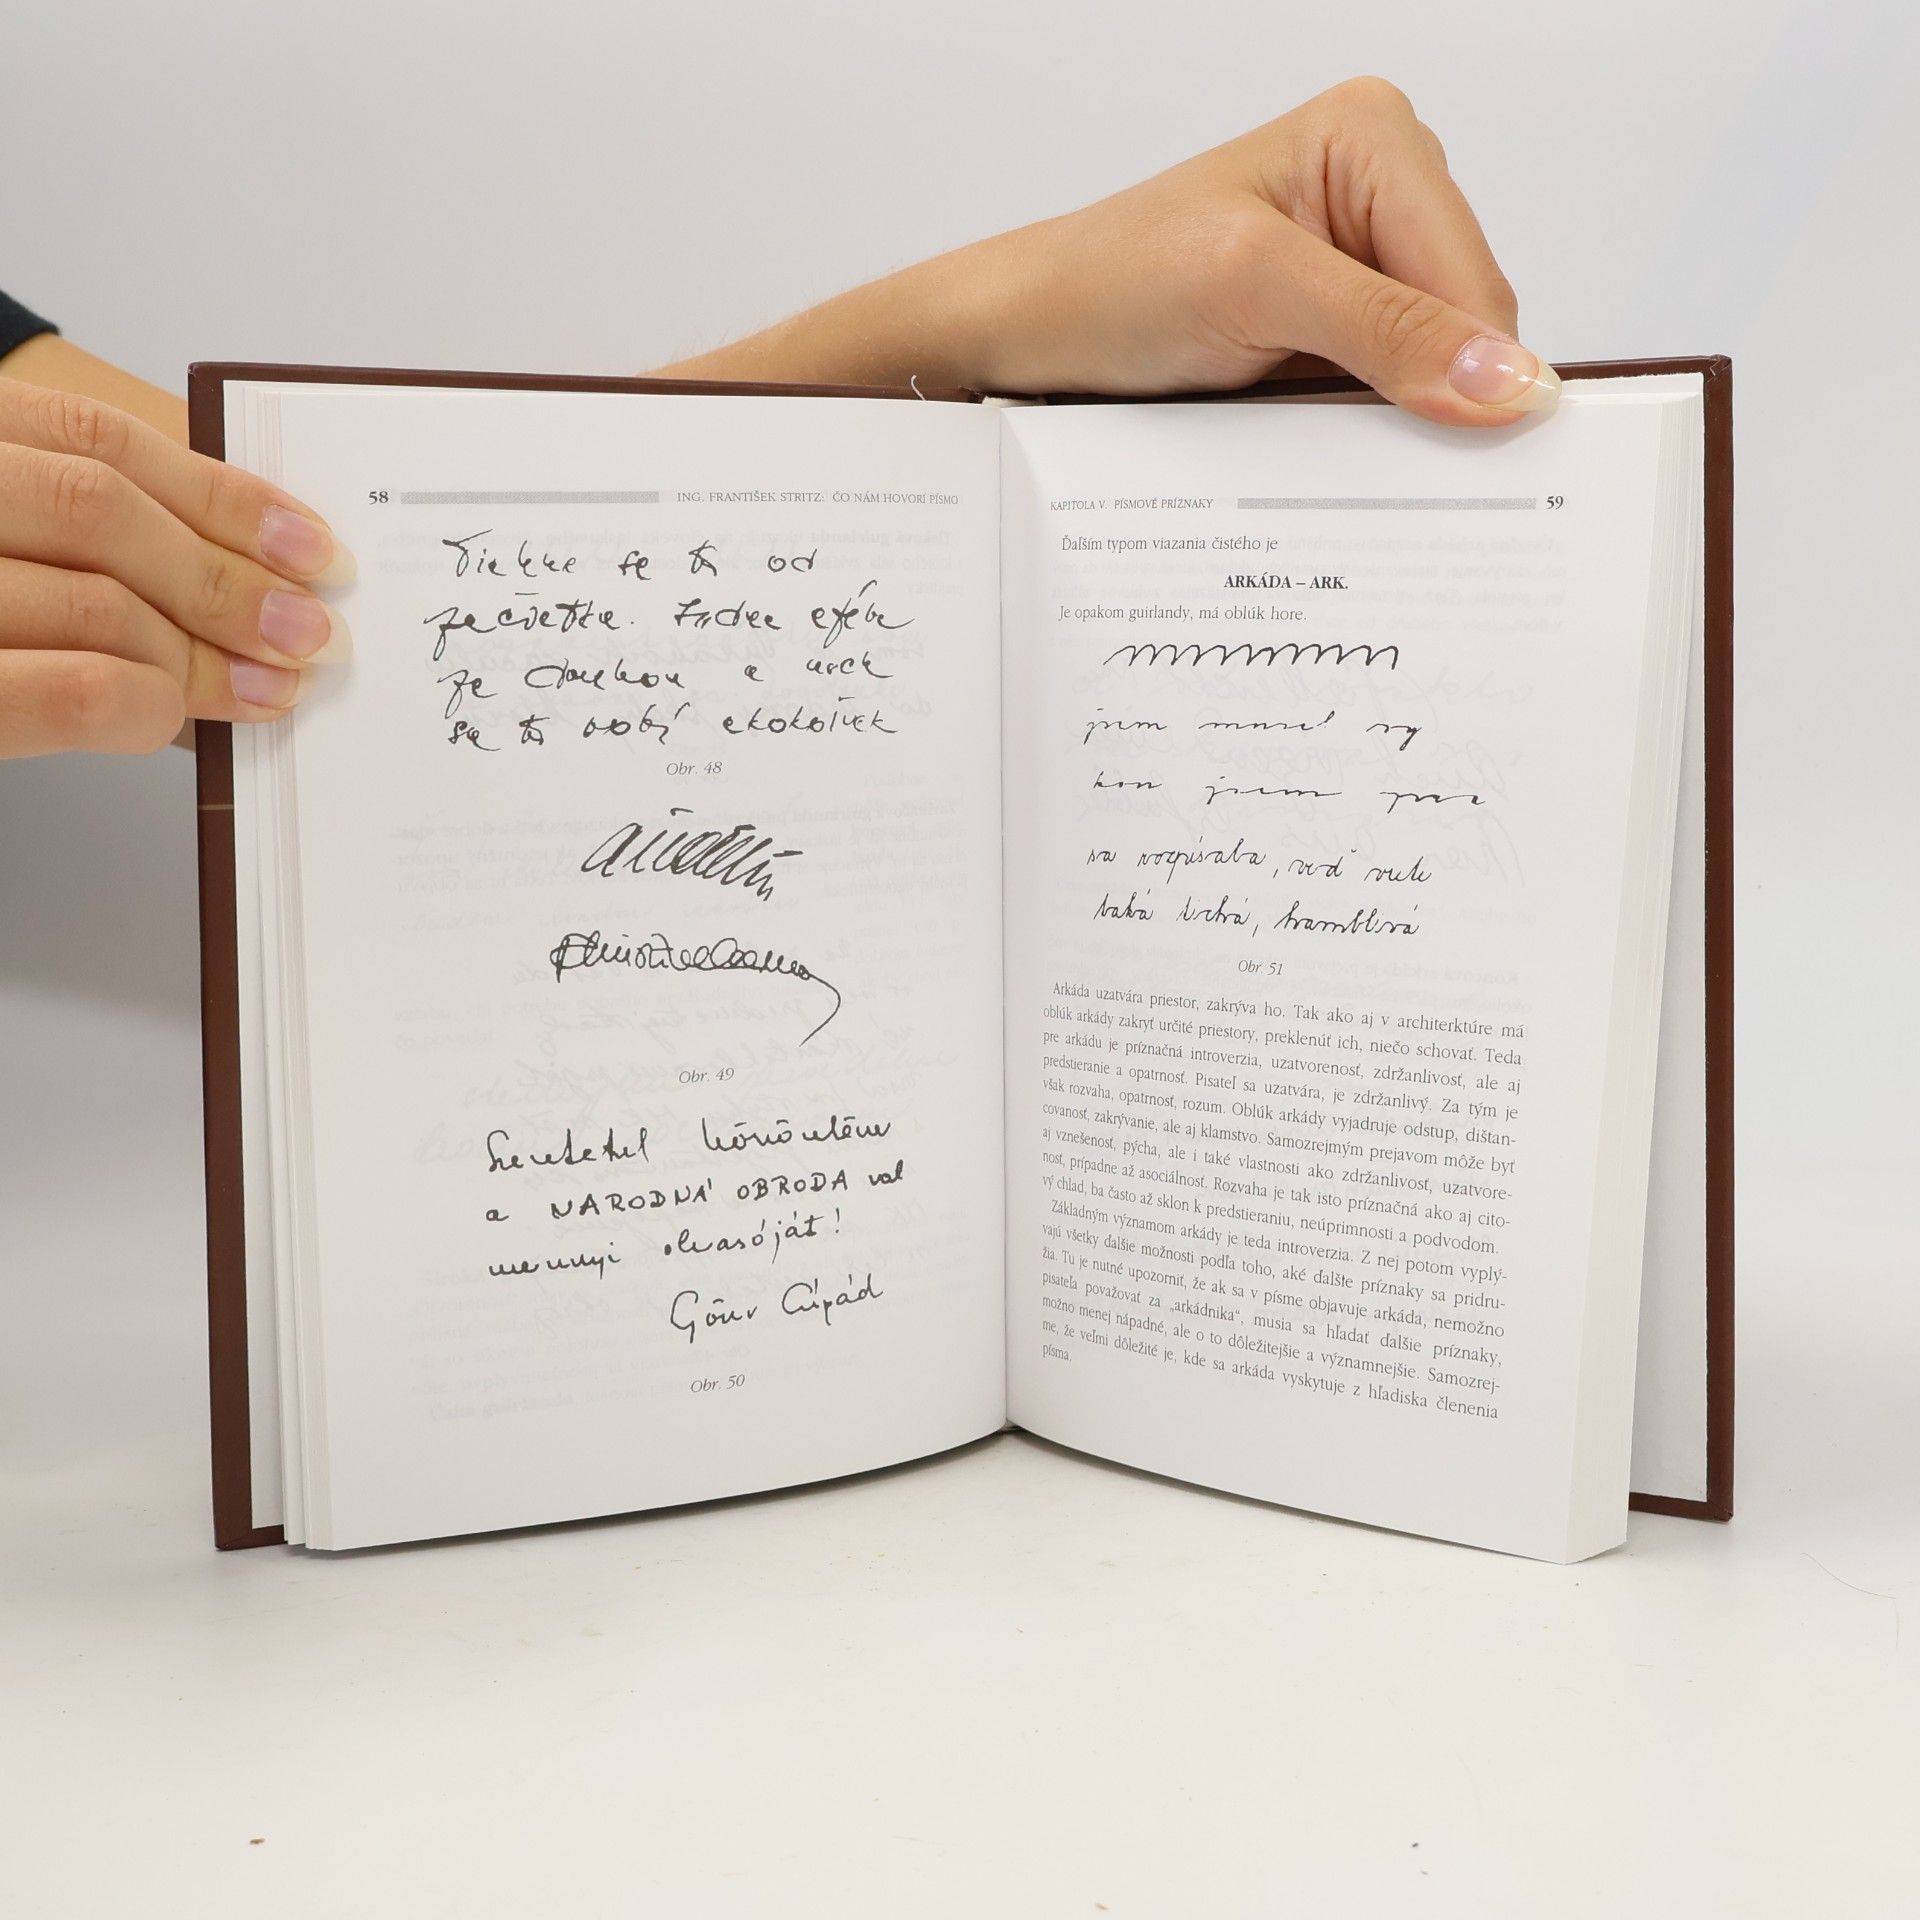 58
ING. FRANTIŠEK STRITZ: ČO NÁM HOVORÍ PÍSMO
se to od
ze
se to
Obr. 48
Obr. 49
Szeretettel köszöntöm
a NÁRODNÁ OBRODA val
mennyi olvasóját!
Göncz Árpád
Obr. 50
KAPITOLA V. PÍSMOVÉ PRÍZNAKY
59
Ďaľším typom viazania čistého je
ARKÁDA – ARK.
Je opakom guirlandy, má oblúk hore.
jsem musel
jsem
sa rozpísala, veď
taká tichá, hamblivá
Obr. 51
Arkáda uzatvára priestor, zakrýva ho. Tak ako aj v architerktúre má
oblúk arkády zakryť určité priestory, preklenúť ich, niečo schovať. Teda
pre arkádu je príznačná introverzia, uzatvorenosť, zdržanlivosť, ale aj
predstieranie a opatrnosť. Pisateľ sa uzatvára, je zdržanlivý. Za tým je
však rozvaha, opatrnosť, rozum. Oblúk arkády vyjadruje odstup, dištan-
covanosť, zakrývanie, ale aj klamstvo. Samozrejmým prejavom môže byť
aj vznešenosť, pýcha, ale i také vlastnosti ako zdržanlivosť, uzatvore-
nosť, prípadne až asociálnosť. Rozvaha je tak isto príznačná ako aj cito-
vý chlad, ba často až sklon k predstieraniu, neúprimnosti a podvodom.
Základným významom arkády je teda introverzia. Z nej potom vyplý-
vajú všetky dalšie možnosti podľa toho, aké ďalšte príznaky sa pridru-
žia. Tu je nutné upozorniť, že ak sa v písme objavuje arkáda, nemožno
pisateľa považovať za „arkádnika“, musia sa hľadať ďalšie príznaky,
možno menej nápadné, ale o to dôležitejšie a významnejšie. Samozrej-
me, že veľmi dôležité je, kde sa arkáda vyskytuje z hľadiska členenia
písma.